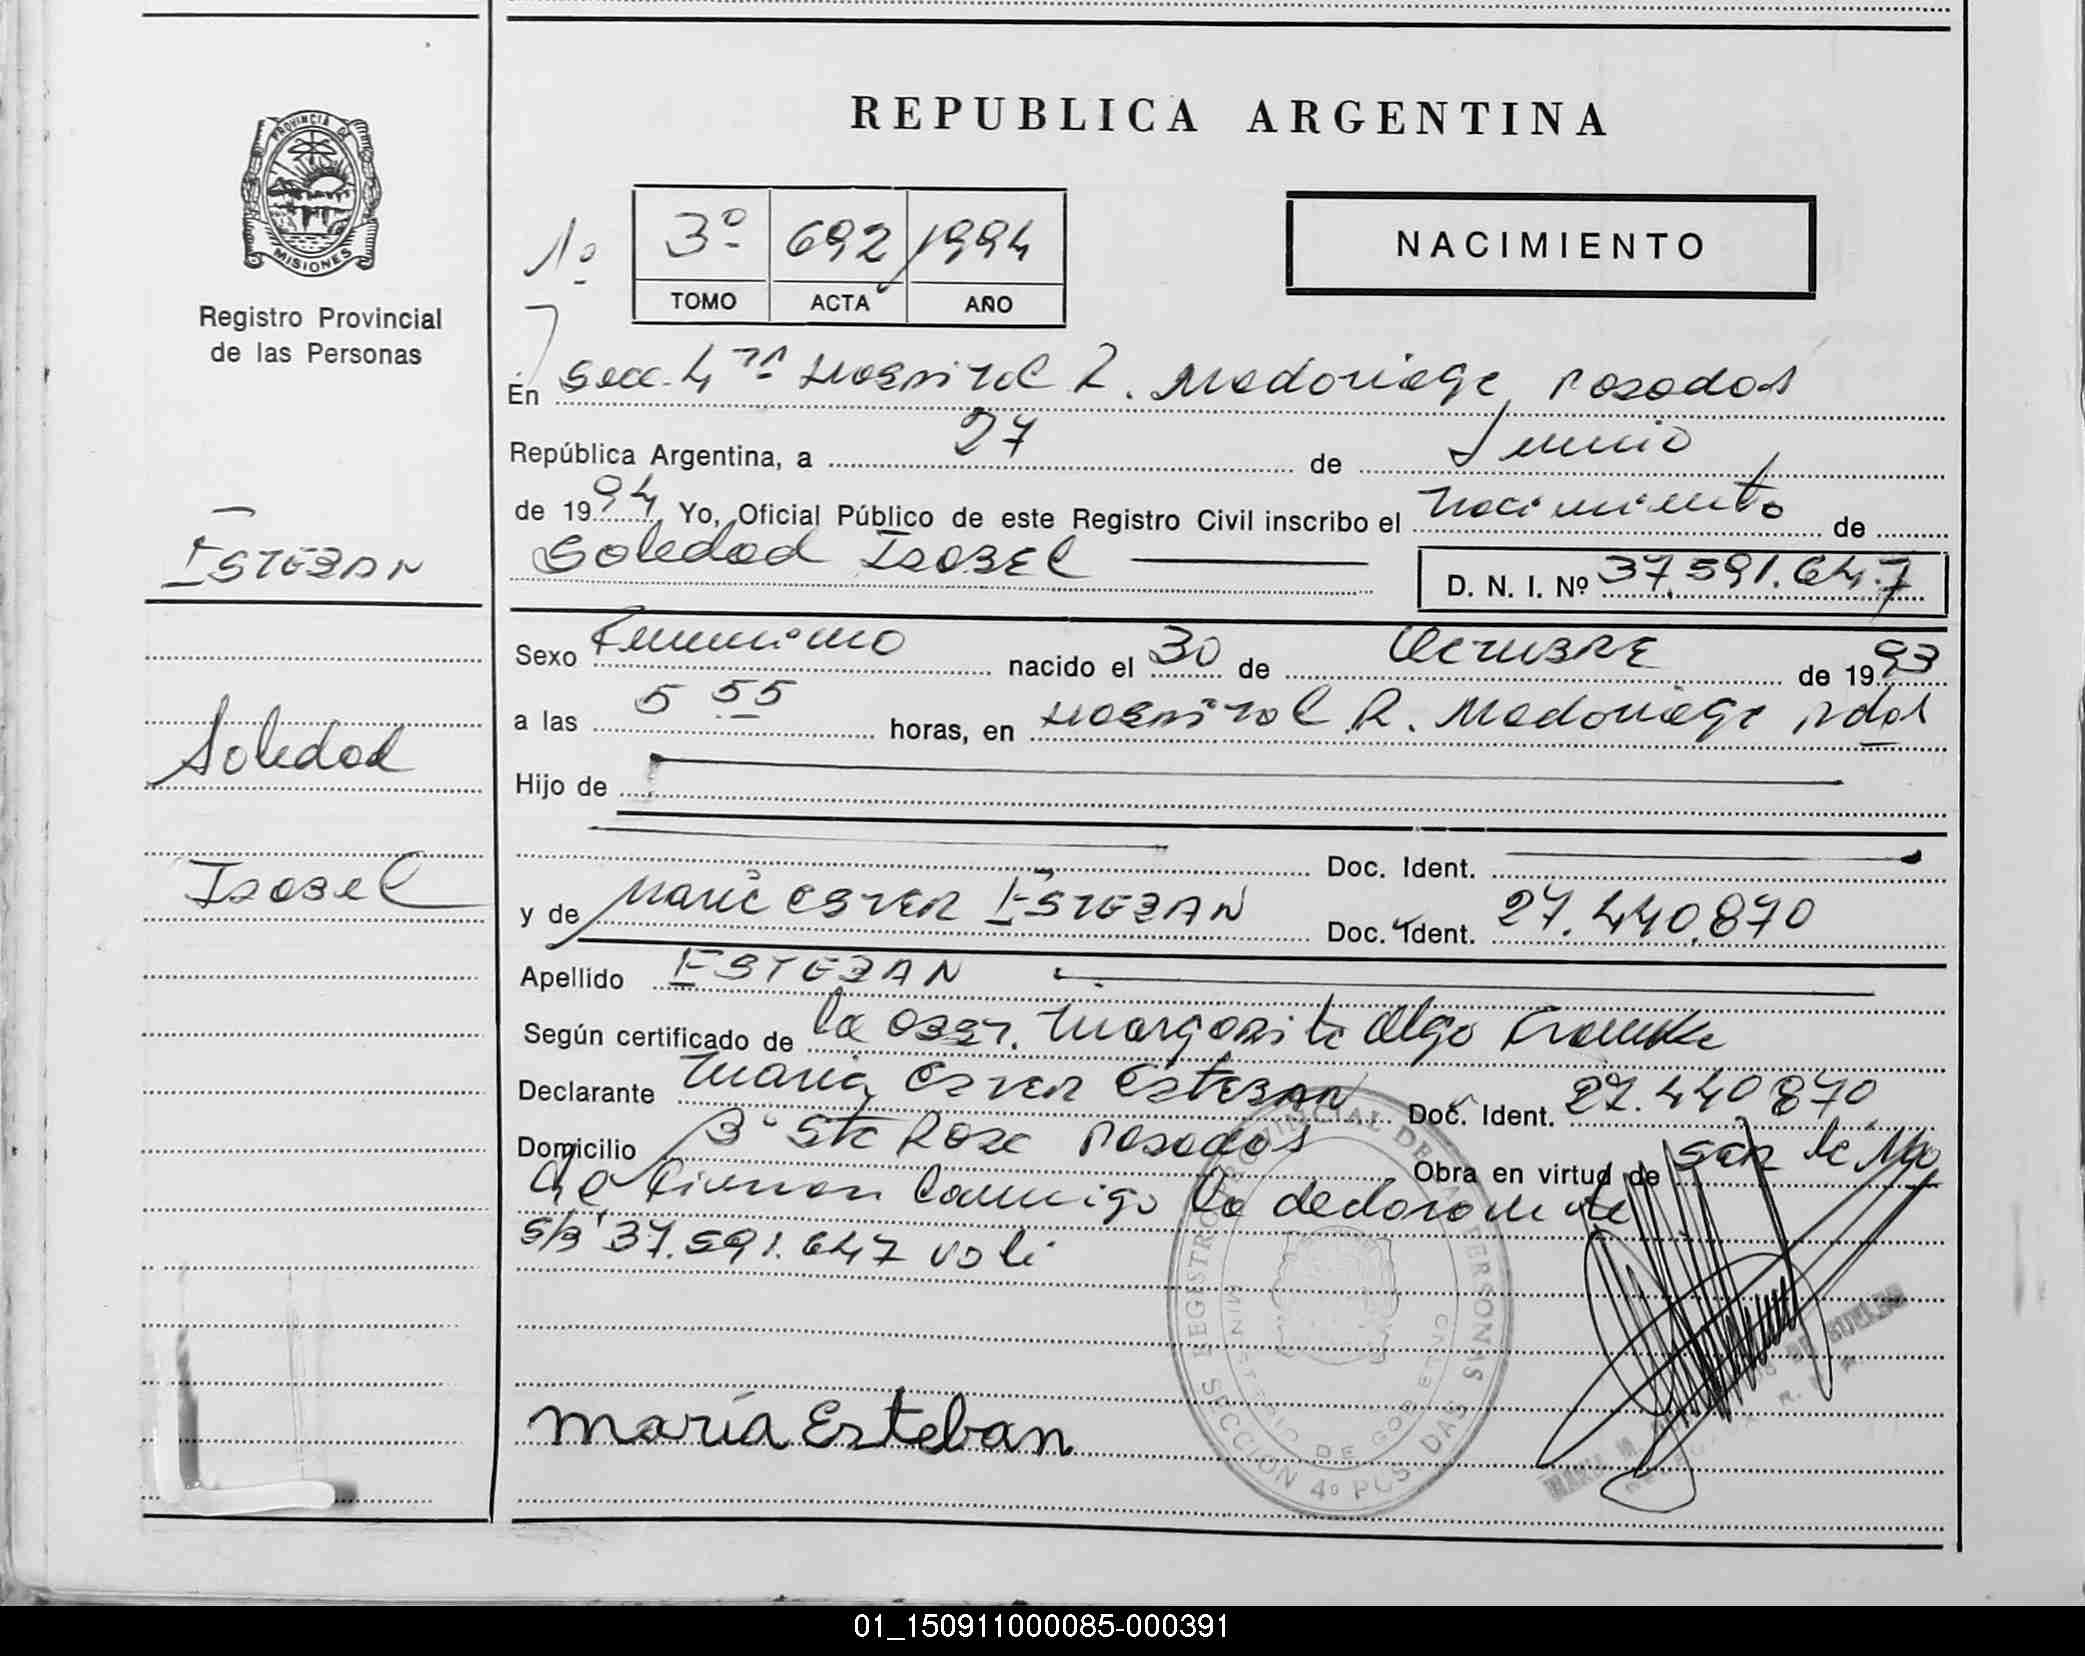 REPUBLICA ARGENTINA
PROVINCIA DE
MISIONES
Registro Provincial
de las Personas
Nº 3º 692 1994
TOMO ACTA AÑO
NACIMIENTO
En Secc. 4ta Hospital R. Madariaga, Posadas
República Argentina, a 27 de Junio
de 1994 Yo, Oficial Público de este Registro Civil inscribo el Nacimiento de
Soledad Isabel
D. N. I. Nº 37.591.647
ESTEBAN
Sexo Femenino nacido el 30 de Octubre de 1993
a las 5 55 horas, en Hospital R. Madariaga Pdas
Soledad
Hijo de
Doc. Ident.
Isabel
y de María Ester ESTEBAN Doc. Ident. 27.440.870
Apellido ESTEBAN
Según certificado de la Obst. Margarita Olga
Declarante María Ester Esteban Doc. Ident. 27.440870
Domicilio Bº Sta Rosa Posadas
Obra en virtud de ser la Ma
dre Firman conmigo la declarante
S/B 37.591.647 vale
María Esteban
REGISTRO PROVINCIAL DE LAS PERSONAS
MINISTERIO DE GOBIERNO
SECCION 4º POSADAS
01_150911000085-000391